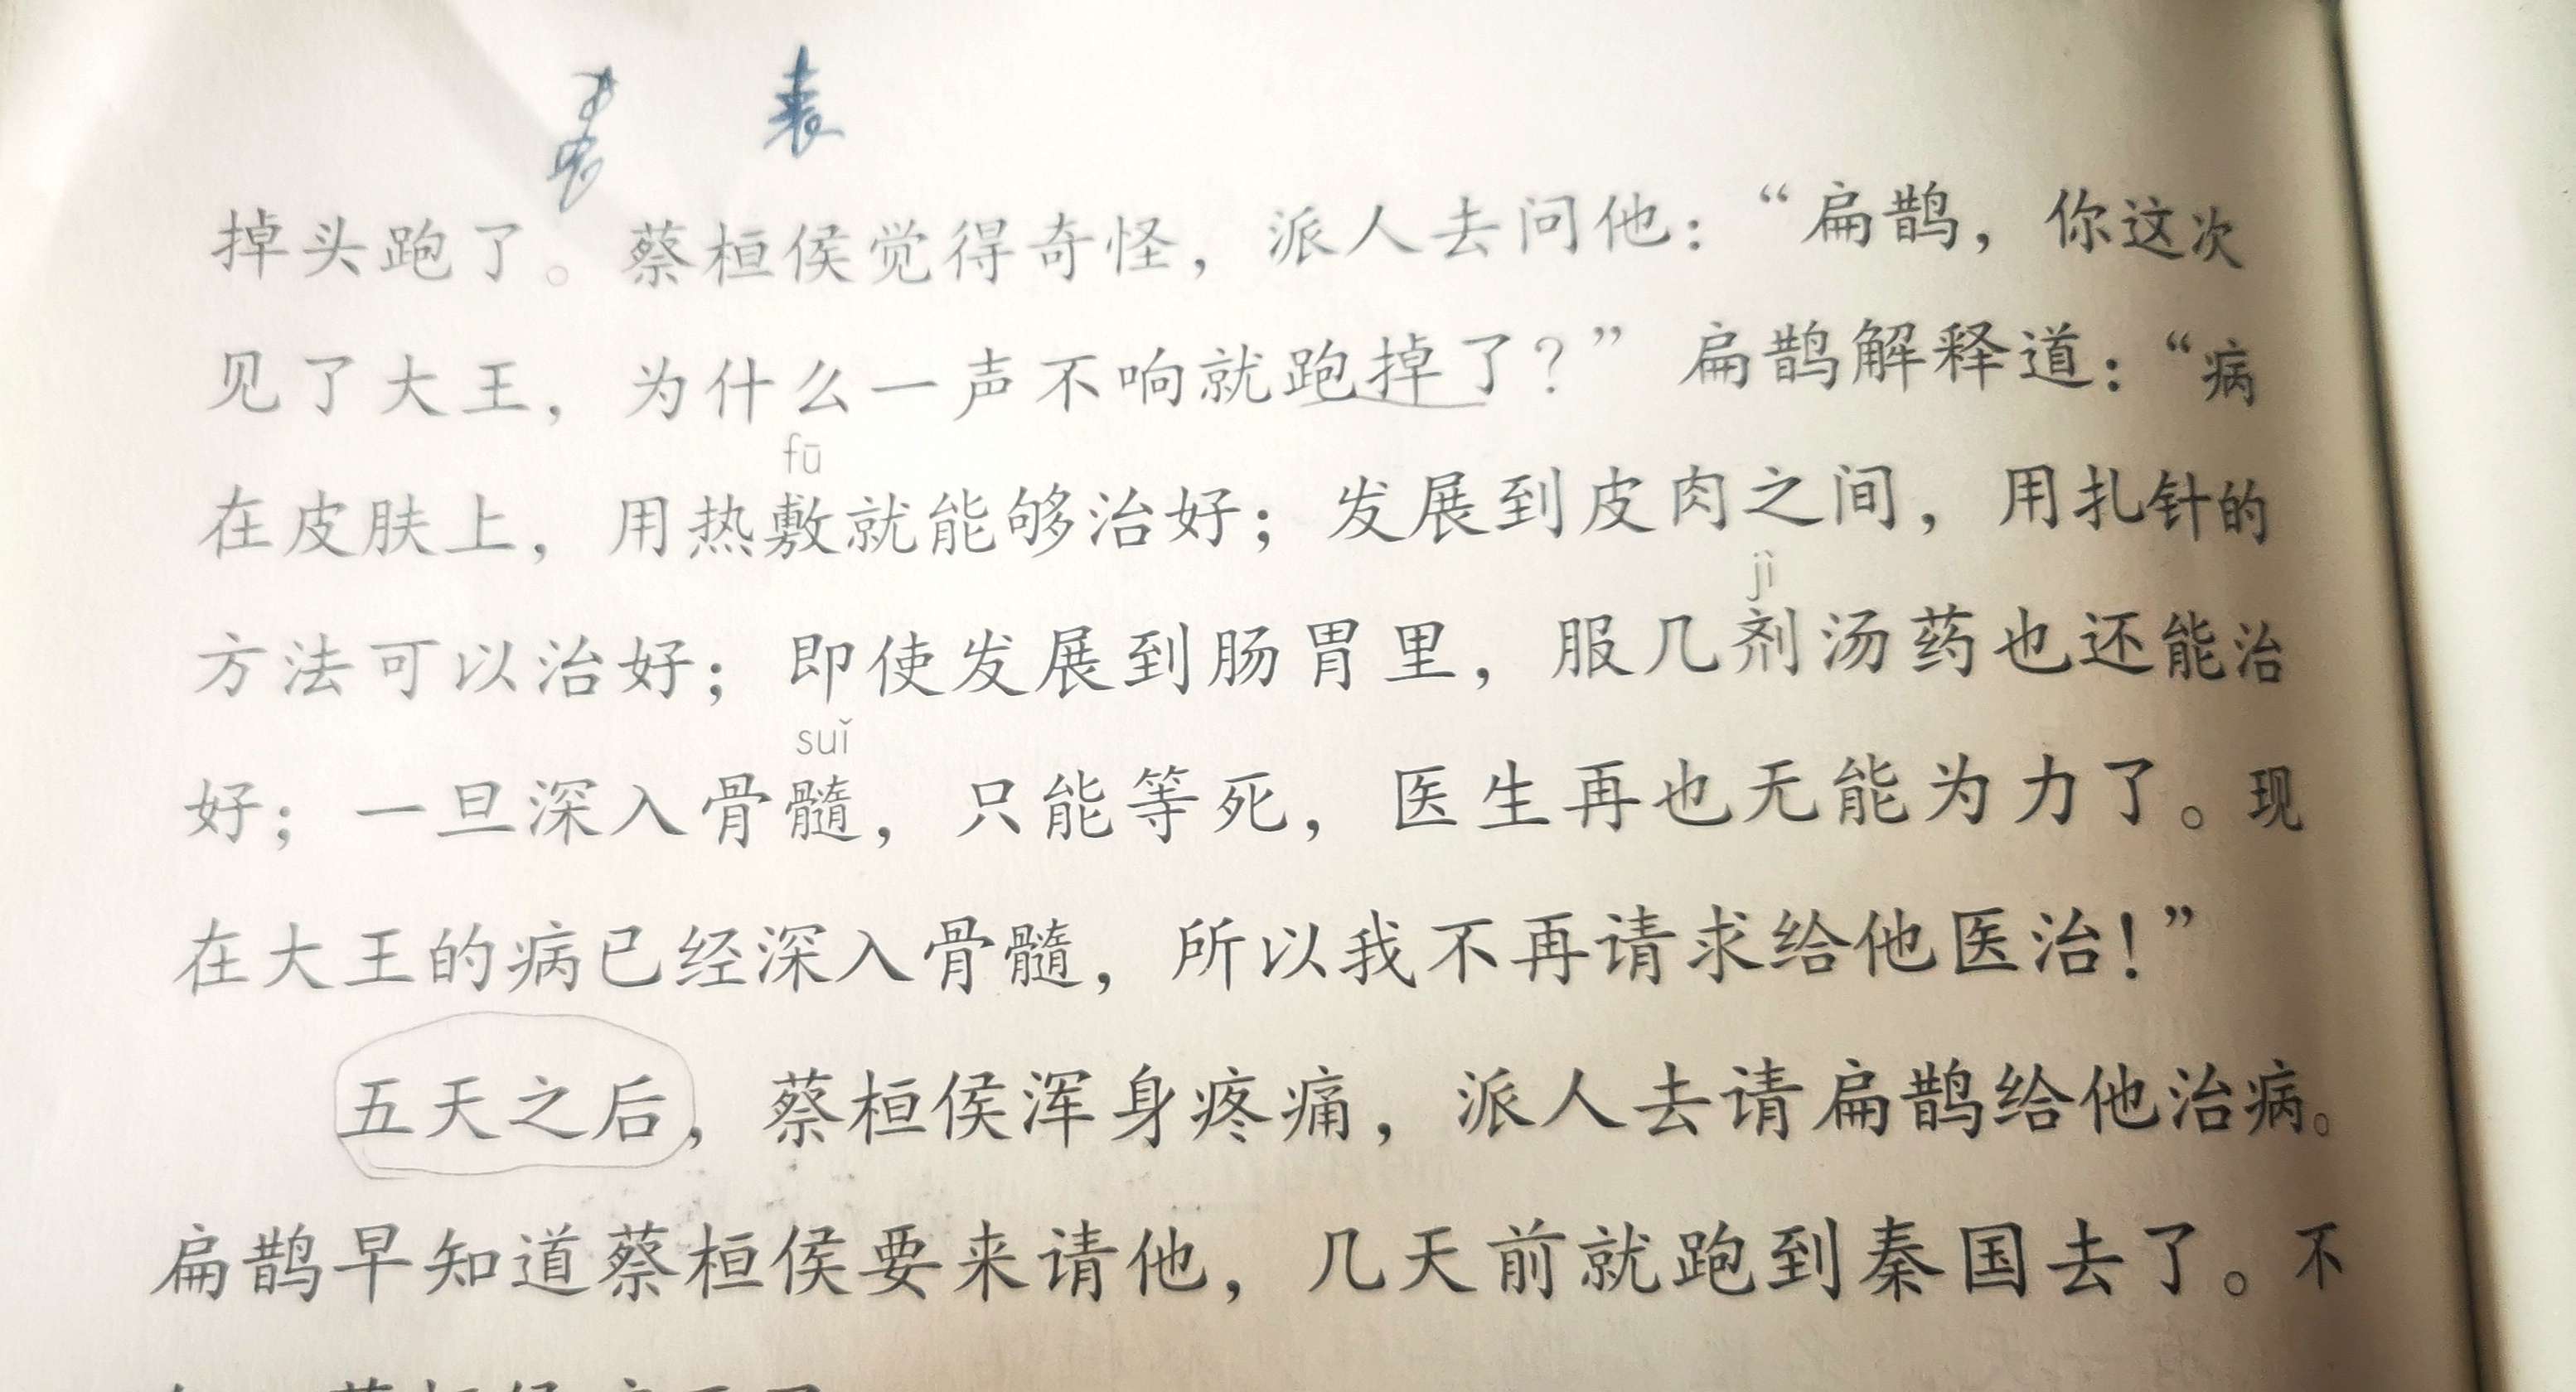 掉头跑了。蔡桓侯觉得奇怪，派人去问他：“扁鹊，你这次
见了大王，为什么一声不响就跑掉了？”扁鹊解释道：“病
fū
在皮肤上，用热敷就能够治好；发展到皮肉之间，用扎针的
jì
方法可以治好；即使发展到肠胃里，服几剂汤药也还能治
suǐ
好；一旦深入骨髓，只能等死，医生再也无能为力了。现
在大王的病已经深入骨髓，所以我不再请求给他医治！”
五天之后，蔡桓侯浑身疼痛，派人去请扁鹊给他治病。
扁鹊早知道蔡桓侯要来请他，几天前就跑到秦国去了。不